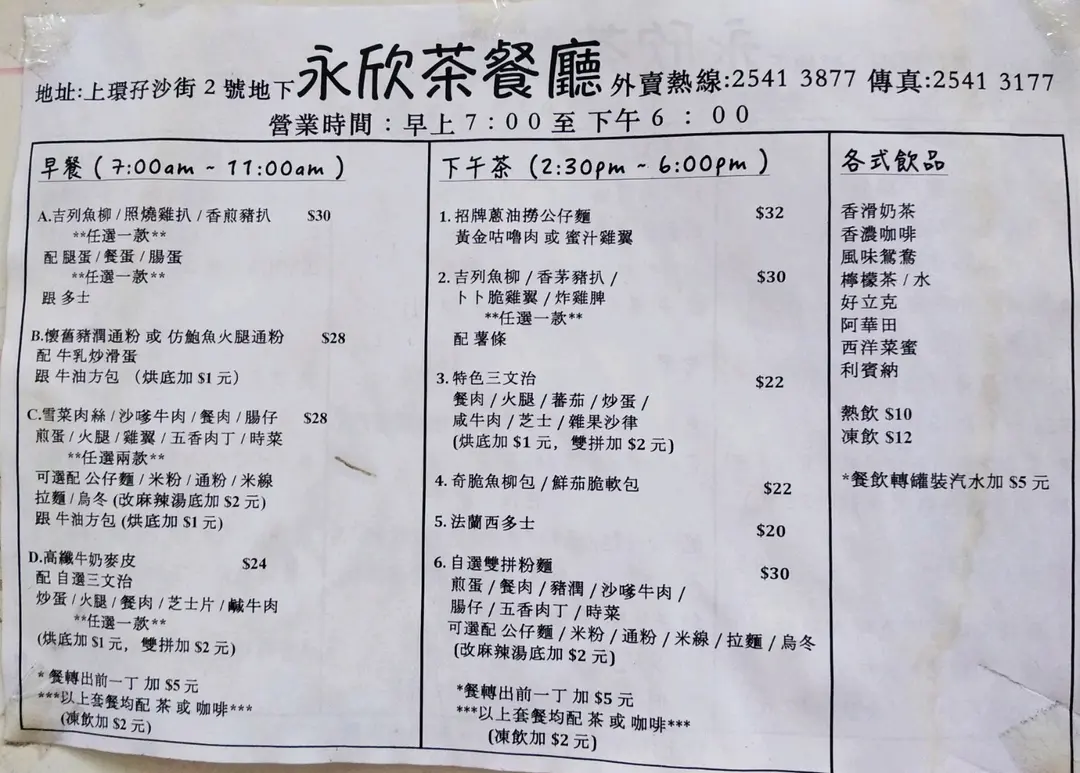 永欣茶餐廳
地址:上環孖沙街 2 號地下
外賣熱線:2541 3877 傳真:2541 3177
營業時間：早上 7：00 至 下午 6：00
早餐 ( 7:00am ~ 11:00am )
A.吉列魚柳 / 照燒雞扒 / 香煎豬扒 $30
**任選一款**
配 腿蛋 / 餐蛋 / 腸蛋
**任選一款**
跟 多士
B.懷舊豬潤通粉 或 仿鮑魚火腿通粉 $28
配 牛乳炒滑蛋
跟 牛油方包 （烘底加 $1 元）
C.雪菜肉絲 / 沙嗲牛肉 / 餐肉 / 腸仔 $28
煎蛋 / 火腿 / 雞翼 / 五香肉丁 / 時菜
**任選兩款**
可選配 公仔麵 / 米粉 / 通粉 / 米線
拉麵 / 烏冬 (改麻辣湯底加 $2 元)
跟 牛油方包 (烘底加 $1 元)
D.高纖牛奶麥皮 $24
配 自選三文治
炒蛋 / 火腿 / 餐肉 / 芝士片 / 鹹牛肉
**任選一款**
(烘底加 $1 元, 雙拼加 $2 元)
* 餐轉出前一丁 加 $5 元
***以上套餐均配 茶 或 咖啡***
(凍飲加 $2 元)
下午茶 (2:30pm ~ 6:00pm )
1. 招牌蔥油撈公仔麵 $32
黃金咕嚕肉 或 蜜汁雞翼
2. 吉列魚柳 / 香茅豬扒 / $30
卜卜脆雞翼 / 炸雞脾
**任選一款**
配 薯條
3. 特色三文治 $22
餐肉 / 火腿 / 蕃茄 / 炒蛋 /
咸牛肉 / 芝士 / 雜果沙律
(烘底加 $1 元, 雙拼加 $2 元)
4. 奇脆魚柳包 / 鮮茄脆軟包 $22
5. 法蘭西多士 $20
6. 自選雙拼粉麵 $30
煎蛋 / 餐肉 / 豬潤 / 沙嗲牛肉 /
腸仔 / 五香肉丁 / 時菜
可選配 公仔麵 / 米粉 / 通粉 / 米線 / 拉麵 / 烏冬
(改麻辣湯底加 $2 元)
*餐轉出前一丁 加 $5 元
***以上套餐均配 茶 或 咖啡***
(凍飲加 $2 元)
各式飲品
香滑奶茶
香濃咖啡
風味鴛鴦
檸檬茶 / 水
好立克
阿華田
西洋菜蜜
利賓納
熱飲 $10
凍飲 $12
*餐飲轉罐裝汽水加 $5 元